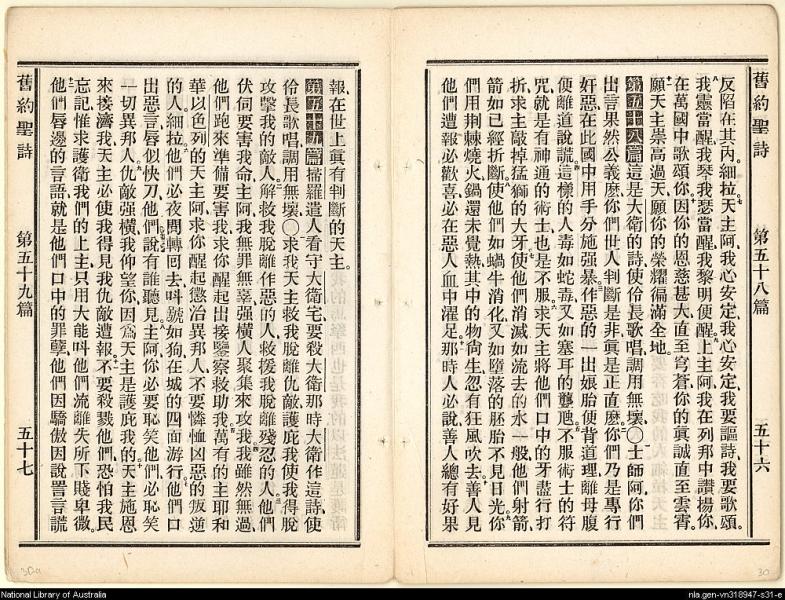 舊約聖詩 第五十八篇 五十六
反陷在其內細拉天主阿我心安定我心安定我要謳詩我要歌頌
我靈當醒我琴我瑟當醒我黎明便醒上主阿我在列邦中讚揚你
在萬國中歌頌你因你的恩慈甚大直至穹蒼你的眞誠直至雲霄
願天主崇高過天願你的榮耀徧滿全地
第五十八篇這是大衛的詩使伶長歌唱調用無壞〇士師阿你們
出言果然公義麼你們世人判斷是非眞是正直麼你們乃是專行
奸惡在此國中用手分施强暴作惡的一出娘胎便背道理離母腹
便離道說謊這樣的人毒如蛇毒又如塞耳的聾虺不服術士的符
咒就是有神通的術士也是不服求天主將他們口中的牙盡行打
折求主敲掉猛獅的大牙使他們消滅如流去的水一般他們射箭
箭如已經折斷使他們如蝸牛消化又如墮落的胚胎不見日光你
們用荆棘燒火鍋還未覺熱其中的物尙生忽有狂風吹去善人見
他們遭報必歡喜必在惡人血中濯足那時人必說善人總有好果
報在世上眞有判斷的天主
第五十九篇掃羅遣人看守大衛宅要殺大衛那時大衛作這詩使
伶長歌唱調用無壞〇求我天主救我脫離仇敵護庇我使我得脫
攻擊我的敵人解救我脫離作惡的人救援我脫離殘忍的人他們
伏伺要害我命主阿我無罪無辜强橫人聚集來攻我我雖然無過
他們跑來準備要害我求你醒起出接鑒察救助我萬有的主耶和
華以色列的天主阿求你醒起懲治異邦人不要憐恤凶惡的叛逆
的人細拉他們必夜間轉回去呌號如狗在城的四面游行他們口
出惡言唇似快刀他們說有誰聽見主阿你必要恥笑他們必恥笑
一切異邦人仇敵强橫我仰望你因爲天主是護庇我的天主施恩
來接濟我天主必使我得見我仇敵遭報不要殺戮他們恐怕我民
忘記惟求護衛我們的上主只用大能呌他們流離失所下賤卑微
他們唇邊的言語就是他們口中的罪孽他們因驕傲因說詈言謊
舊約聖詩 第五十九篇 五十七
National Library of Australia
nla.gen-vn318947-s31-e